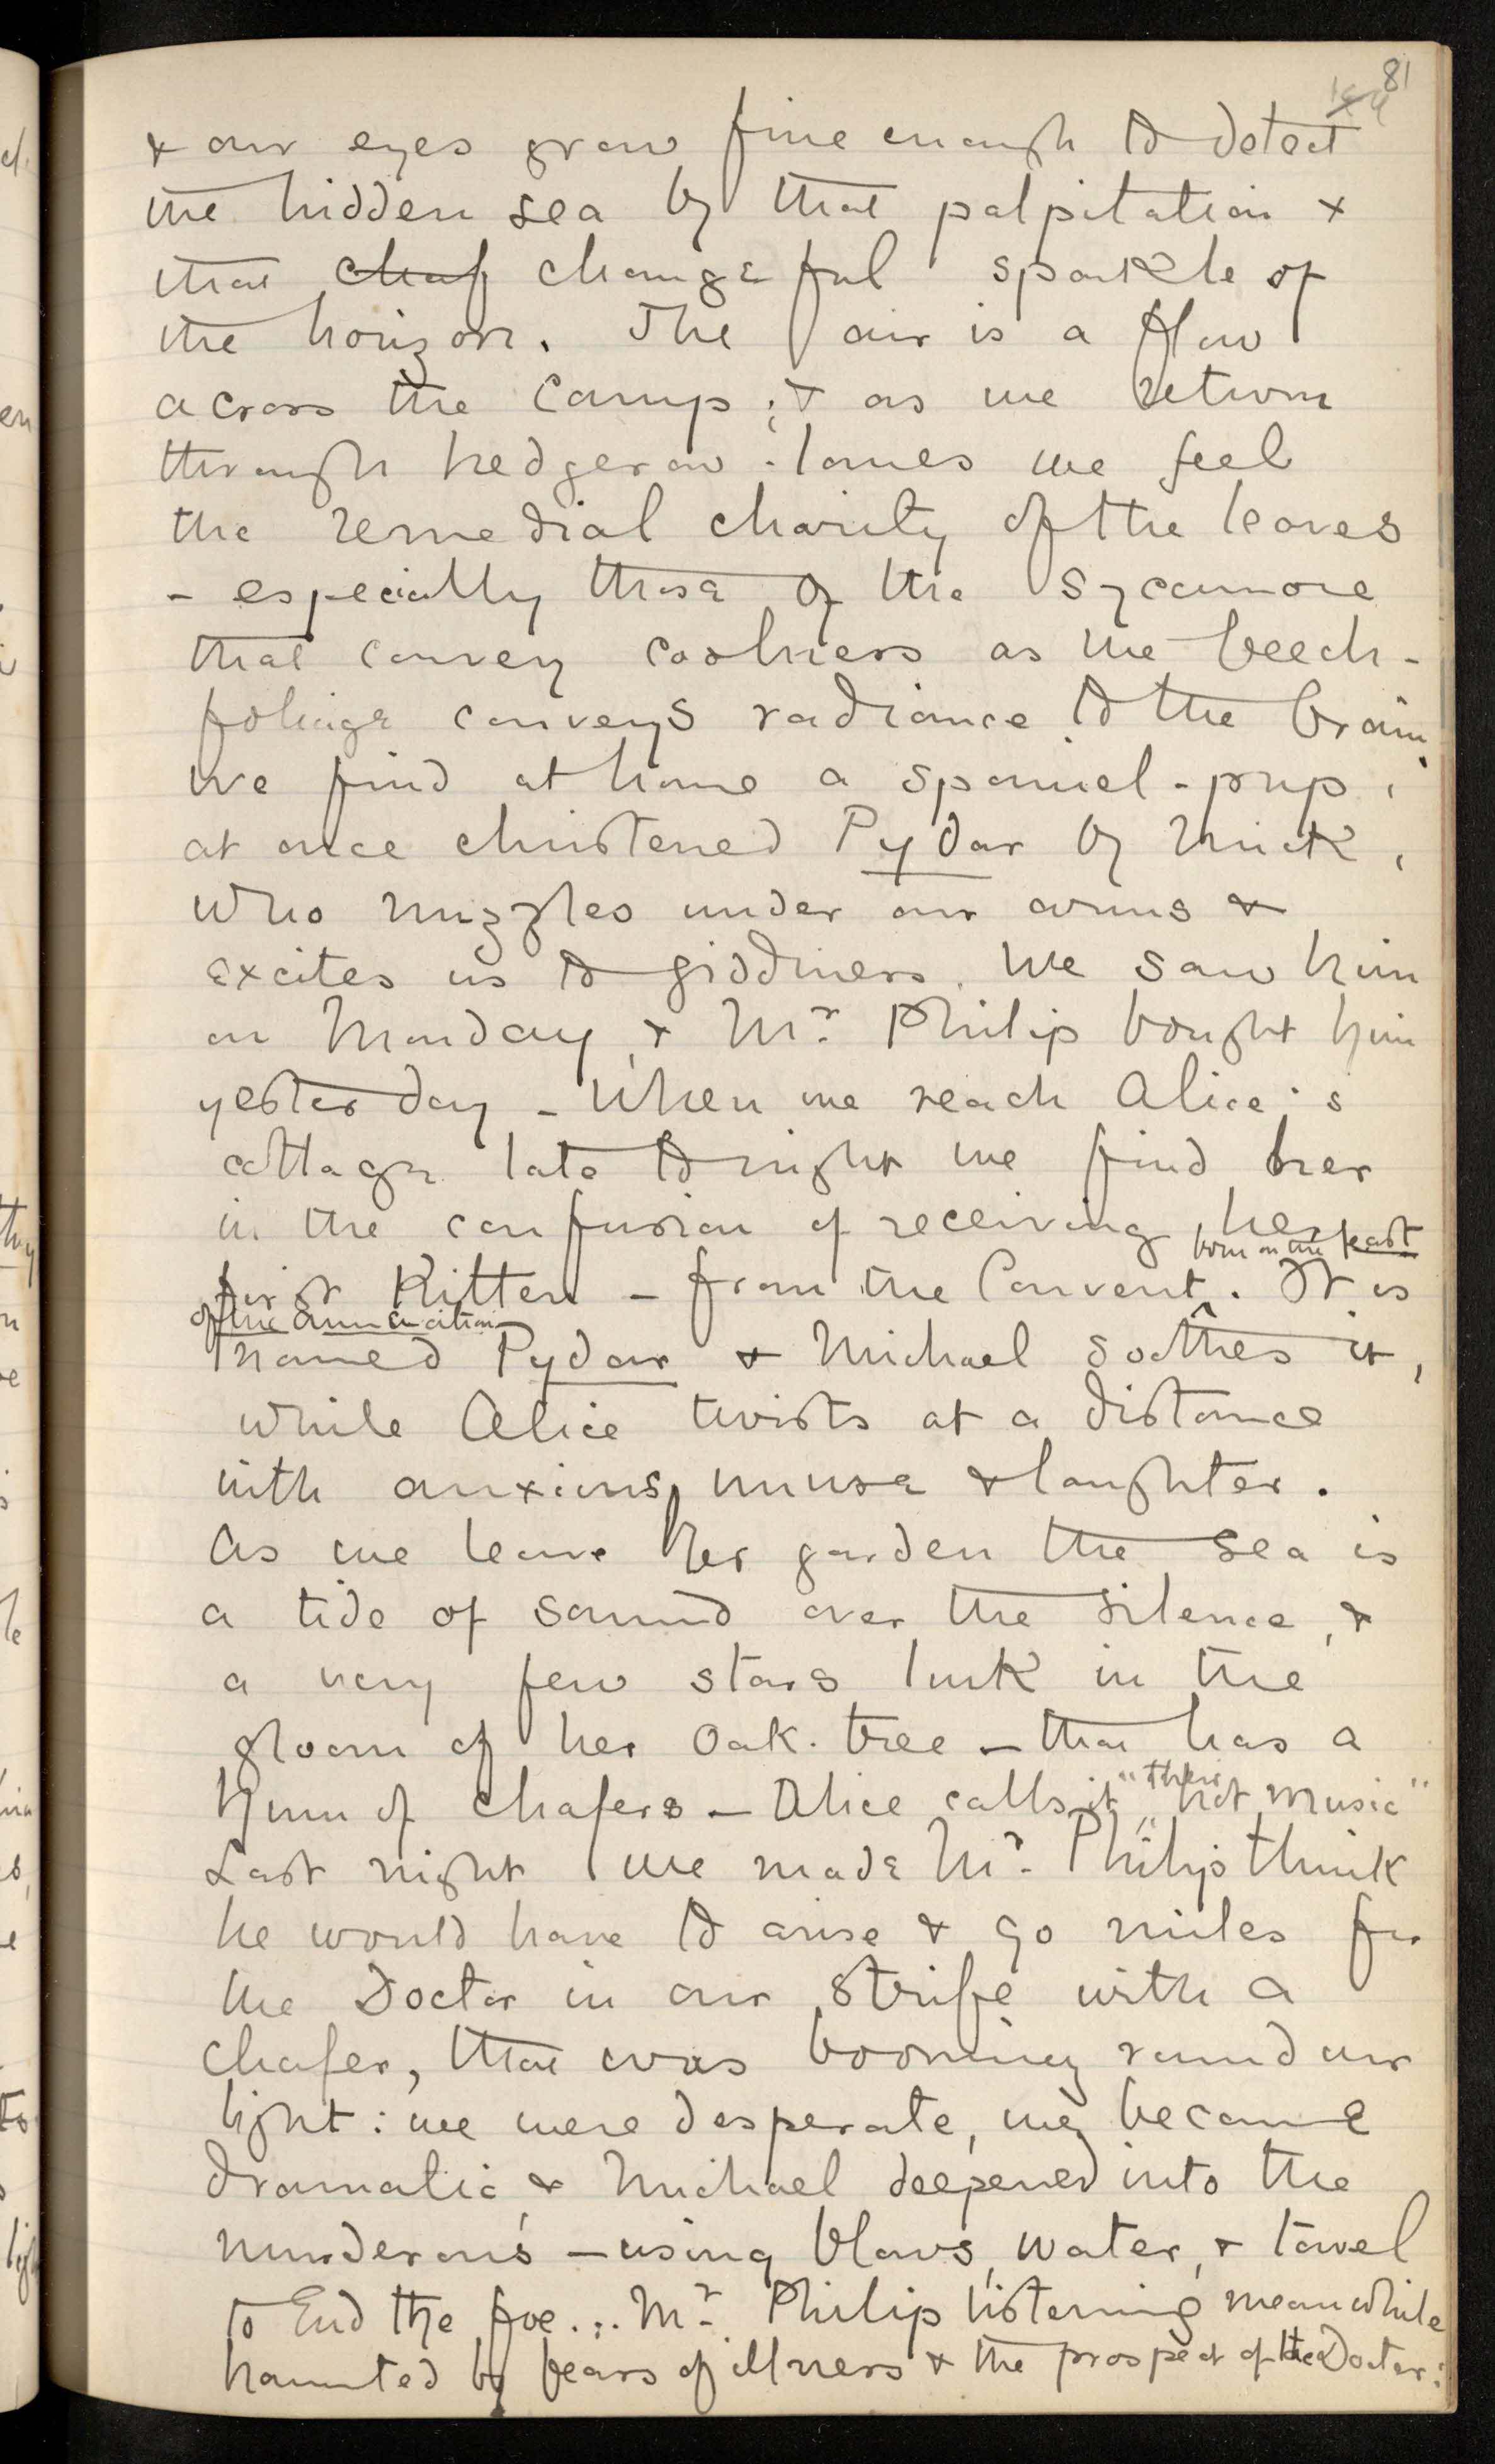 81
& our eyes grow fine enough to detect
the hidden sea by that palpitation &
that chaf changeful sparkle of
the horizon. The air is a flow
across the Camp; & as we return
through hedgerow-lanes we feel
the remedial charity of the leaves
- especially those of the Sycamore
that convey coolness as the beech-
foliage conveys radiance to the brain.
We find at home a spaniel-pup,
at once christened Pydar by Mick,
who nuzzles under our arms &
excites us to giddiness. We saw him
on Monday, & Mr. Philip bought him
yesterday - When we reach Alice's
cottage late to night we find her
in the confusion of receiving her
born on the feast
first Kitten - from the Convent. It is
of the Annunciation
named Pydar & Michael soothes it,
while Alice twists at a distance
with anxious, muse & laughter.
As we leave her garden the sea is
a tide of sound over the silence, &
a very few stars lurk in the
gloom of her Oak-tree - that has a
hum of chafers - Alice calls it "their hot music"
Last night we made Mr. Philip think
he would have to arise & go miles for
the Doctor in our strife with a
chafer, that was booming round our
light: we were desperate, we became
dramatic & Michael deepened into the
murderous - using blows, water, & towel
to End the foe... Mr. Philip listening meanwhile
haunted by fears of illness & the prospect of the Doctor: